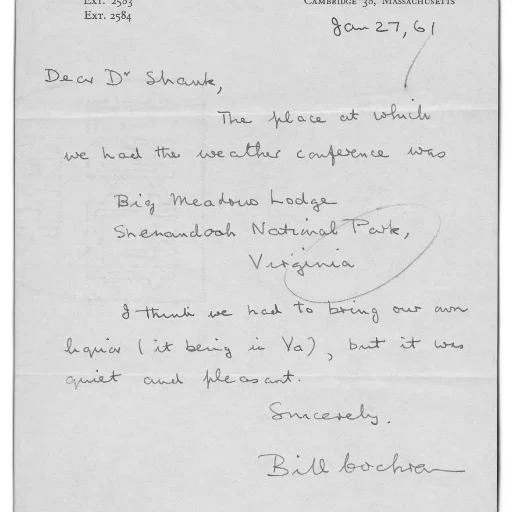 Ext. 2583
Ext. 2584
Cambridge 38, Massachusetts
Jan 27, 61
Dear Dr Shank,
The place at which
we had the weather conference was
Big Meadows Lodge
Shenandoah National Park,
Virginia
I think we had to bring our own
liquor (it being in Va), but it was
quiet and pleasant.
Sincerely.
Bill Cochran